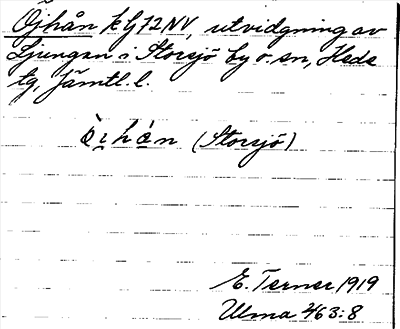 Öjhån kg 12 NV, utvidgning av
Ljungan i Storsjö by o. sn, Hede
tg, Jämtl. l.
ò̱i̱hà̱n (Storsjö)
E. Terner 1919
Ulma 2/63:8